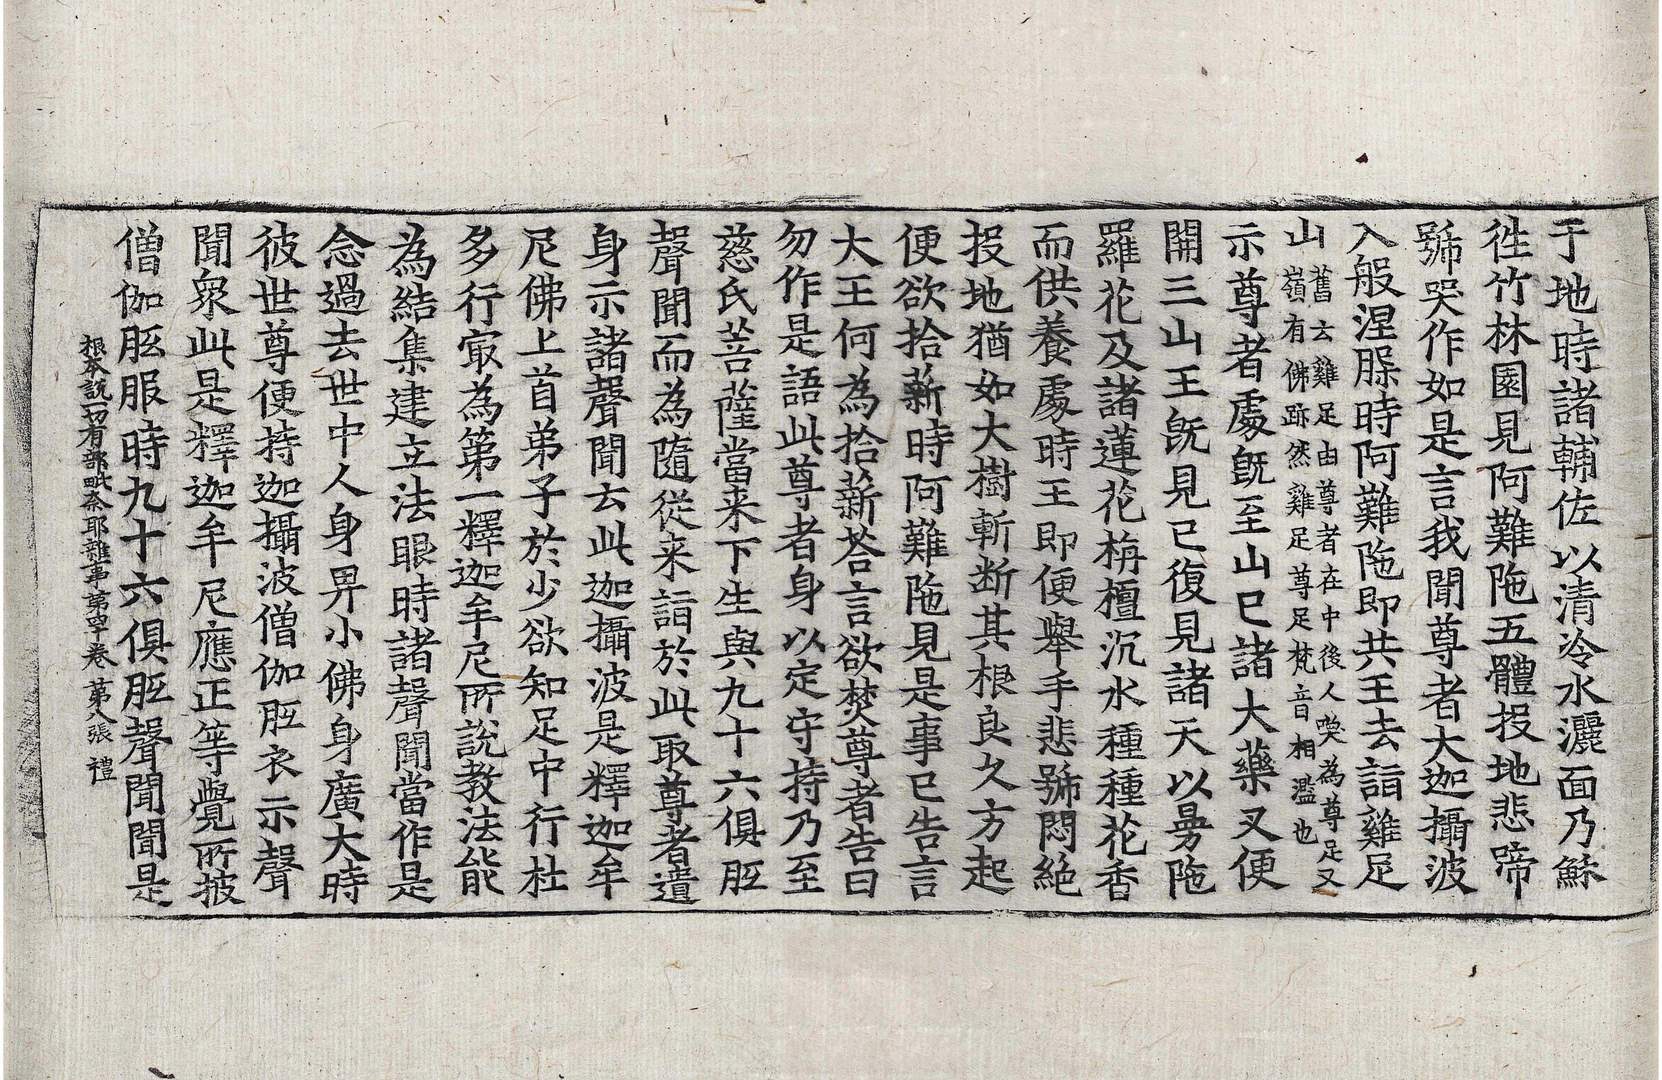 于地時諸輔佐以清冷水灑面乃穌
徃竹林園見阿難陁五體投地悲啼
號哭作如是言我聞尊者大迦攝波
入般涅槃時阿難陁即共王去詣雞足
山舊云雞足由尊者在中後人喚為尊足又
嶺有佛跡然雞足尊足梵音相濫也
示尊者處旣至山已諸大藥叉便
開三山王旣見已復見諸天以曼陁
羅花及諸蓮花栴檀沉水種種花香
而供養處時王即便舉手悲號悶絶
投地猶如大樹斬断其根良久方起
便欲拾薪時阿難陁見是事已告言
大王何為拾薪荅言欲焚尊者告曰
勿作是語此尊者身以定守持乃至
慈氏菩薩當来下生與九十六俱胝
聲聞而為隨從来詣於此取尊者遺
身示諸聲聞云此迦攝波是釋迦牟
尼佛上首弟子於少欲知足中行杜
多行㝡為第一釋迦牟尼所說教法能
為結集建立法眼時諸聲聞當作是
念過去世中人身畀小佛身廣大時
彼世尊便持迦攝波僧伽胝衣示聲
聞衆此是釋迦牟尼應正等覺所披
僧伽胝服時九十六俱胝聲聞聞是
根本說一切有部毗奈耶雜事第四十卷 第八張 禮